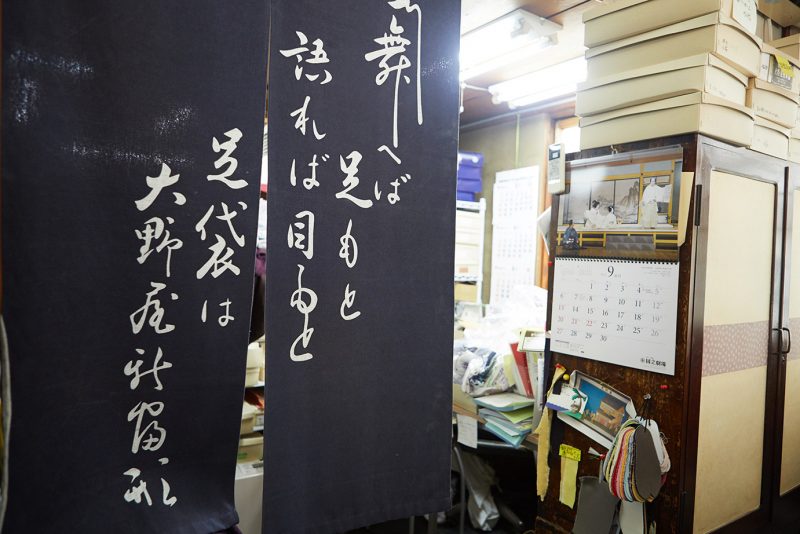 舞へば
足もと
語れば目もと
足袋は
大野屋新富形
9
1 2 3 4 5
6 7 8 9 10 11 12
13 14 15 16 17 18 19
20 21 22 23 24 25 26
27 28 29 30
国立劇場